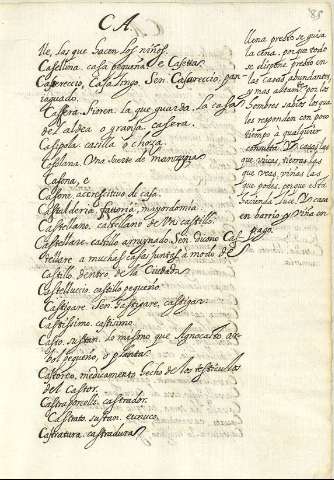 CA.
85
lle, las que hacen los niños.
Casellina. casa pequeña, e Casetta
Casereccio, Casalingo. Sen. Casareccio; pan
Casera. Fioren. la que guarda la casa
del aldea o granja. casera.
Casipola. casilla o choza.
Casolana. Una suerte de manzana
Casona, e
Casone. accresitivo de casa.
Castalderia. fatoria, mayordomia
Castellano. castellano de un castillo.
Castellare. castillo arruynado. Sen. dicono Cas-
tellare a muchas casas juntas a modo de
Castillo. dentro de la Ciudad
Castelluccio. castillo pequeño.
Castigare. Sen. gastigare, castigar.
Castissimo. castisimo.
Casto. sustan. lo mesmo que Agnocasto ar-
bol pequeño, o planta.
Castoreo, medicamento hecho de los testiculos
del Castor.
Castraporcelli. castrador.
Castrato. sustan. eunuco.
Castratura. castradura
llena presto se guisa
la cena. porque todo
se dispone presto en
las casas abundantes,
y mas adonde por los
hombres sabios los que
les responden con poco
tiempo a qualquier
Y casas las
que veas, tierras las
que veas, viñas las
que podes, porque esta
hacienda luce. Y casa
en barrio, y viña en
pago.